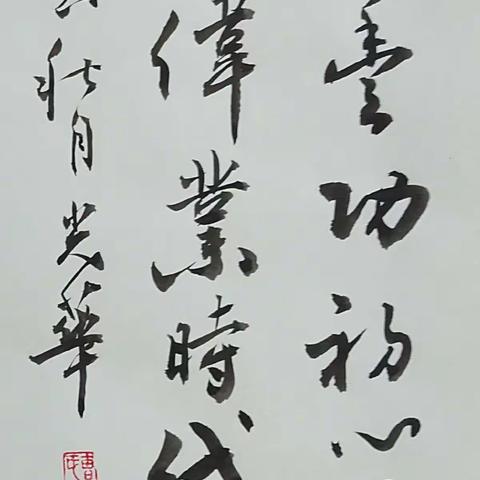 豐功初心
偉業時代
秋月光華